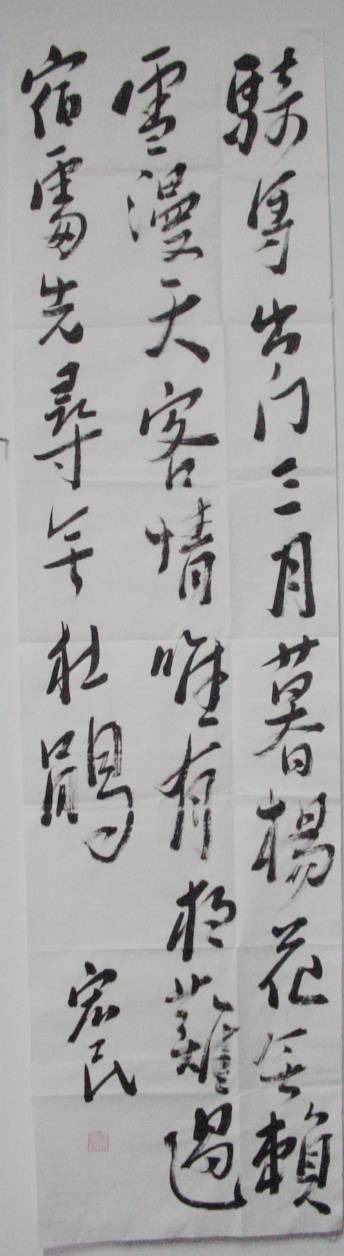 騎馬出门三月暮楊花無賴
雪漫天客情唯有夜難過
宿處先尋無杜鵑
宏民